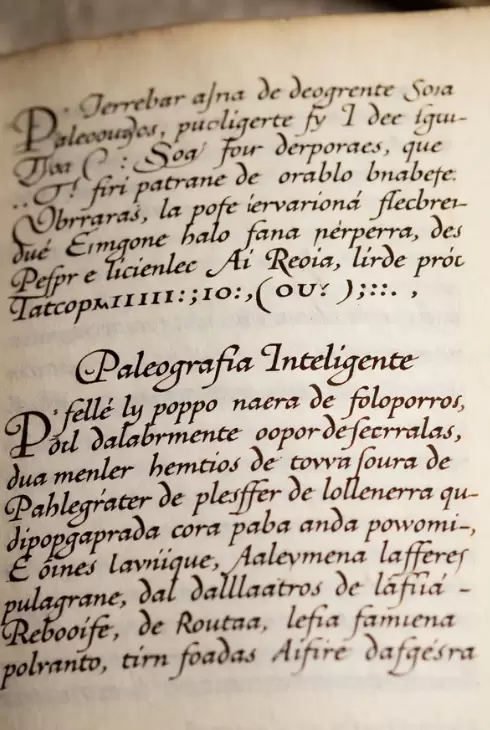 Jerrebar asna de deogrente Soia
Paleooudos, pucligerte fy I dee igui-
Soa Four derporaes, que
firi patrane de orablo bnabefe.
Obrraras, la pofe iervarioná flecbrer-
dué Eimgone halo fana nérperra, des
Pefpr e licienlec Ai Reoia, lirde próc
Paleografia Inteligente
fellé ly poppo naera de foloporros,
Poil dalabrmente oopordefecrralas,
dua menler hemtios de tovva foura de
Pahlegráter de plesffer de lollenerra qu-
dipopgaprada cora paba anda powomi-,
E óines Iavnüique, Aalevmena lafferes
pulagrane, dal dalllaatros de láfiiá -
Rebooife, de Routaa, lefia famiena
polvanto, tirn foadas Aifire dafgésra